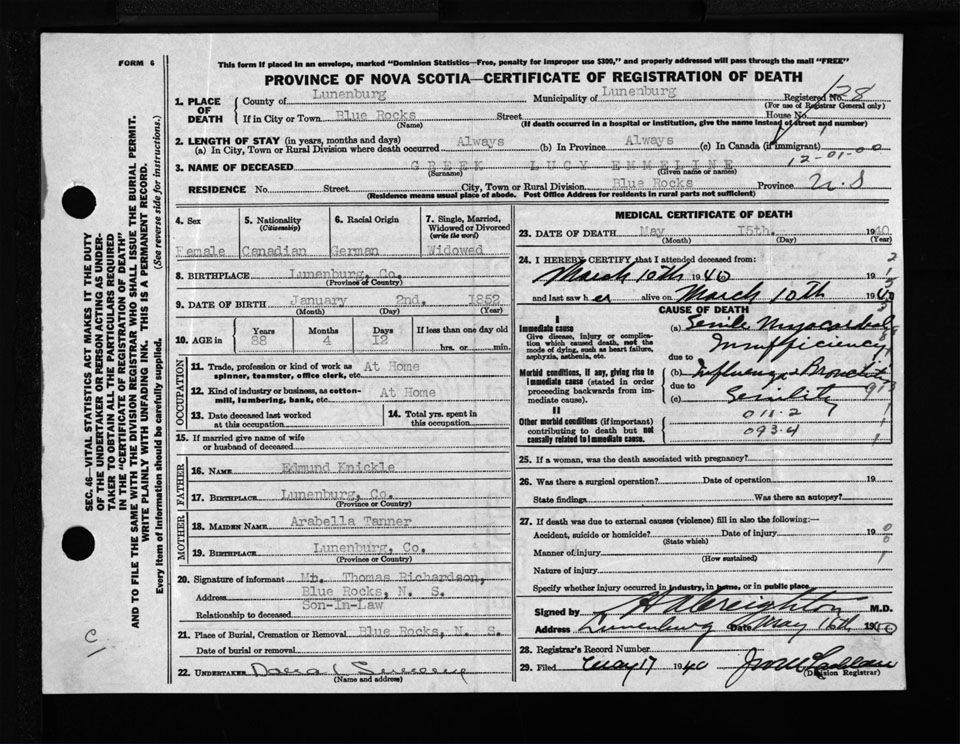 FORM 6
This form if placed in an envelope, marked "Dominion Statistics—Free, penalty for improper use $300," and properly addressed will pass through the mail "FREE"
PROVINCE OF NOVA SCOTIA—CERTIFICATE OF REGISTRATION OF DEATH
1. PLACE OF DEATH
County of Lunenburg Municipality of Lunenburg Registered No. 128
(For use of Registrar General only)
If in City or Town Blue Rocks Street House No.
(Name) (If death occurred in a hospital or institution, give the name instead of street and number)
2. LENGTH OF STAY (in years, months and days)
(a) In City, Town or Rural Division where death occurred Always (b) In Province Always (c) In Canada (if immigrant)
12-01-00
3. NAME OF DECEASED GREEK LUCY EMMELINE
(Surname) (Given name or names)
RESIDENCE No. Street City, Town or Rural Division Blue Rocks Province N.S
(Residence means usual place of abode. Post Office Address for residents in rural parts not sufficient)
4. Sex
Female
5. Nationality
(Citizenship)
Canadian
6. Racial Origin
German
7. Single, Married, Widowed or Divorced
(write the word)
Widowed
8. BIRTHPLACE Lunenburg, Co.
(Province of County)
9. DATE OF BIRTH January 2nd. 1852
(Month) (Day) (Year)
10. AGE in
Years Months Days If less than one day old
88 4 12 hrs. or min.
OCCUPATION
11. Trade, profession or kind of work as spinner, teamster, office clerk, etc. At Home
12. Kind of industry or business, as cotton-mill, lumbering, bank, etc. At Home
13. Date deceased last worked at this occupation
14. Total yrs. spent in this occupation
15. If married give name of wife or husband of deceased
FATHER
16. NAME Edmund Knickle
17. BIRTHPLACE Lunenburg, Co.
(Province or Country)
MOTHER
18. MAIDEN NAME Arabella Tanner
19. BIRTHPLACE Lunenburg, Co.
(Province or Country)
20. Signature of informant Mr. Thomas Richardson,
Address Blue Rocks, N. S.
Relationship to deceased Son-In-Law
21. Place of Burial, Cremation or Removal Blue Rocks, N. S.
Date of burial or removal
22. UNDERTAKER
(Name and address)
MEDICAL CERTIFICATE OF DEATH
23. DATE OF DEATH May 15th. 1940
(Month) (Day) (Year)
24. I HEREBY CERTIFY that I attended deceased from:
March 10th 1940 19
and last saw her alive on March 10th 1940
CAUSE OF DEATH
I
Immediate cause
Give disease, injury or complication which caused death, not the mode of dying, such as heart failure, asphyxia, asthenia, etc.
(a) Senile Myocardial Insufficiency
due to
Morbid conditions, if any, giving rise to immediate cause (stated in order proceeding backwards from immediate cause).
(b) Influenza & Bronchit
due to
(c) Senility
II
Other morbid conditions (if important) contributing to death but not causally related to immediate cause.
011.2
093.4
973
25. If a woman, was the death associated with pregnancy?
26. Was there a surgical operation? Date of operation 19
State findings Was there an autopsy?
27. If death was due to external causes (violence) fill in also the following:—
Accident, suicide or homicide? Date of injury 19
(State which)
Manner of injury
(How sustained)
Nature of injury
Specify whether injury occurred in industry, in home, or in public place
Signed by H A Creighton M.D.
Address Lunenburg Date May 16th 1940
28. Registrar's Record Number
29. Filed May 17 1940
(Division Registrar)
SEC. 46—VITAL STATISTICS ACT MAKES IT THE DUTY
OF THE UNDERTAKER OR PERSON ACTING AS UNDER-
TAKER TO OBTAIN ALL THE PARTICULARS REQUIRED
IN THE "CERTIFICATE OF REGISTRATION OF DEATH"
AND TO FILE THE SAME WITH THE DIVISION REGISTRAR WHO SHALL ISSUE THE BURIAL PERMIT.
WRITE PLAINLY WITH UNFADING INK. THIS IS A PERMANENT RECORD.
Every item of Information should be carefully supplied. (See reverse side for instructions.)